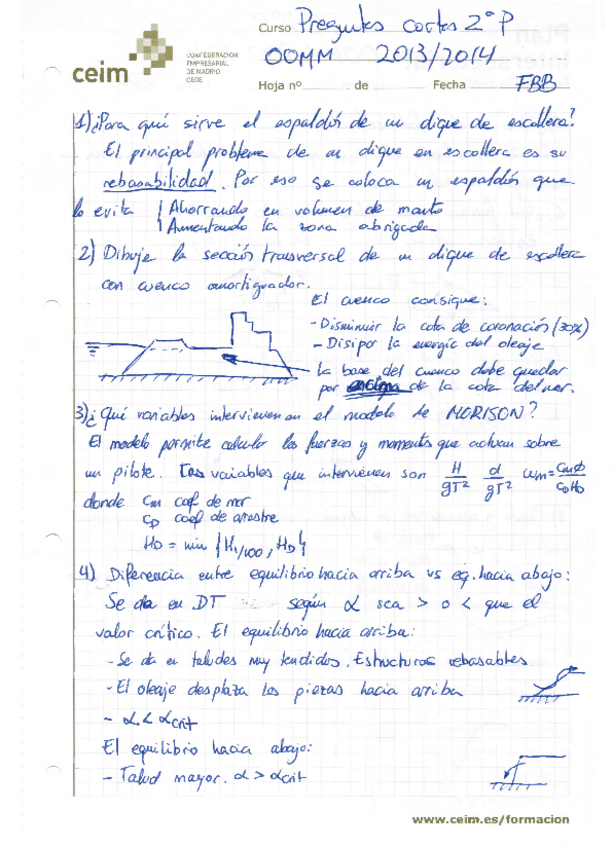 ceim
CONFEDERACIÓN
EMPRESARIAL
DE MADRID
CEOE
Curso Preguntas cortas 2º P
OOMM 2013/2014
Hoja nº de Fecha FBB
1) ¿Para qué sirve el espaldón de un dique de escollera?
El principal problema de un dique en escollera es su
rebasabilidad. Por eso se coloca un espaldón que
lo evita | Ahorrando en volumen de manto
| Aumentando la zona abrigada
2) Dibuje la sección transversal de un dique de escollera
con cuenco amortiguador.
El cuenco consigue:
- Disminuir la cota de coronación (30%)
- Disipar la energía del oleaje
La base del cuenco debe quedar
por encima de la cota del mar.
3) ¿Qué variables intervienen en el modelo de MORISON?
El modelo permite calcular las fuerzas y momentos que actuan sobre
un pilote. Las variables que intervienen son H/gT² d/gT² = Cmϕ/CDHD
donde Cm coef de mar
CD coef de arrastre
HD = min {H1/100, HD}
4) Diferencia entre equilibrio hacia arriba vs eq. hacia abajo:
Se da en DT según α sea > o < que el
valor crítico. El equilibrio hacia arriba:
- Se da en taludes muy tendidos. Estructuras rebasables
- El oleaje desplaza las piezas hacia arriba
- α < αcrit
El equilibrio hacia abajo:
- Talud mayor. α > αcrit
www.ceim.es/formacion